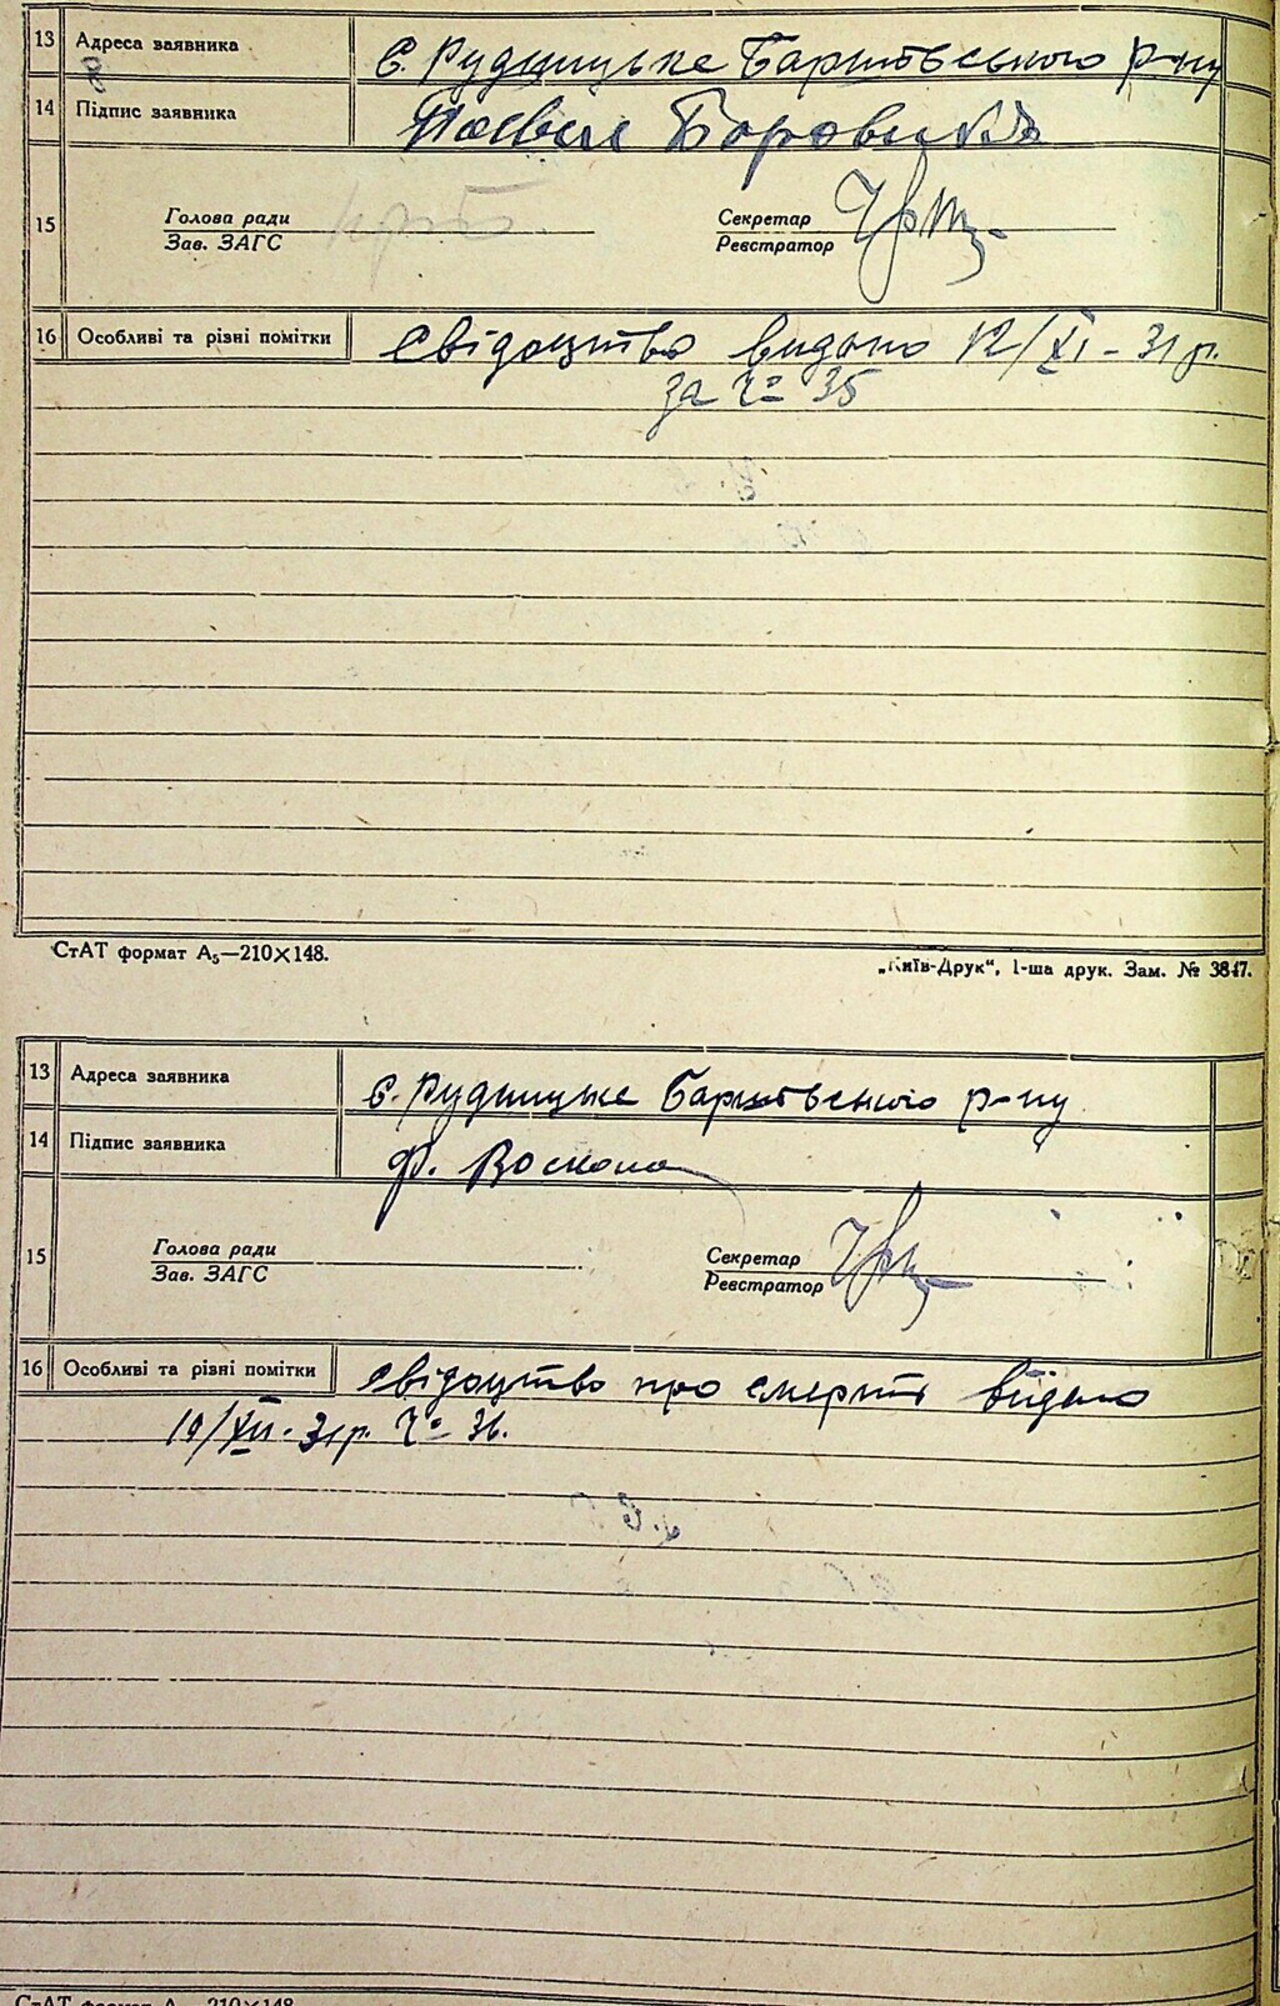 13 Адреса заявника с. Рудницьке Баришівського р-ну
14 Підпис заявника Боровик
15 Голова ради Секретар
Зав. ЗАГС Реєстратор
16 Особливі та різні помітки Свідоцтво видано 12/XI - 31 р.
за № 35
СтАТ формат А₅—210×148.
„Київ-Друк“, 1-ша друк. Зам. № 3847.
13 Адреса заявника с. Рудницьке Баришівського р-ну
14 Підпис заявника Ф.
15 Голова ради Секретар
Зав. ЗАГС Реєстратор
16 Особливі та різні помітки Свідоцтво про смерть видано
19/XII - 31 р. № 36.
СтАТ формат А₅—210×148